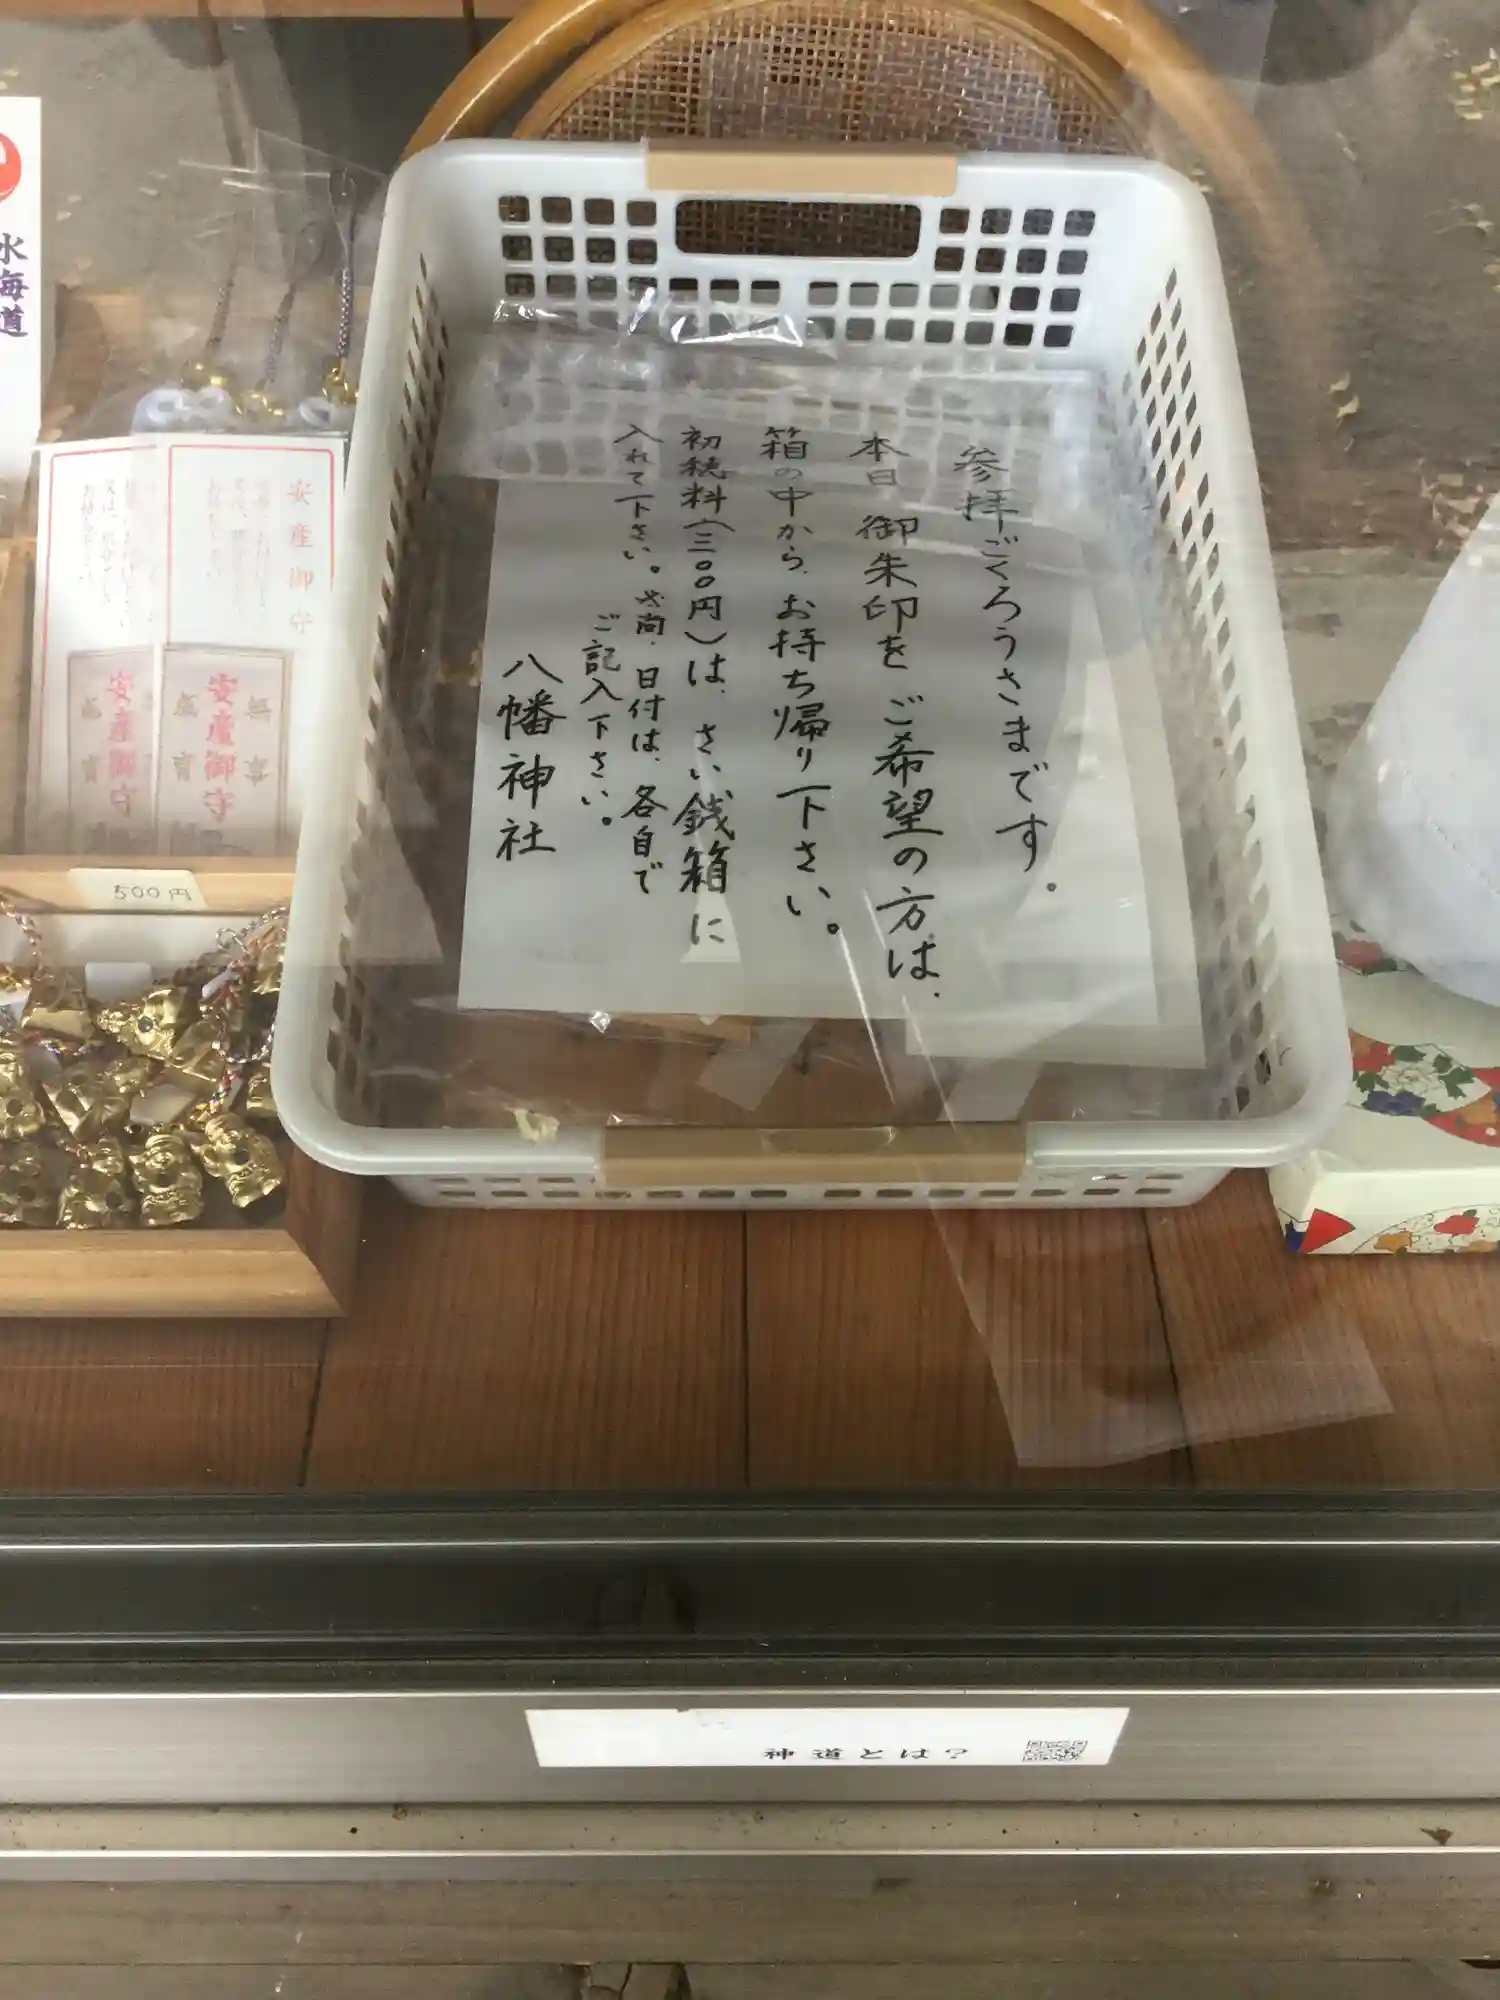 参拝ごくろうさまです。
本日 御朱印をご希望の方は、
箱の中から、お持ち帰り下さい。
初穂料(三〇〇円)は、さい銭箱に
入れて下さい。尚、日付は、各自で
ご記入下さい。
八幡神社
水海道
安産御守
安産御守
安産御守
500円
神道とは?